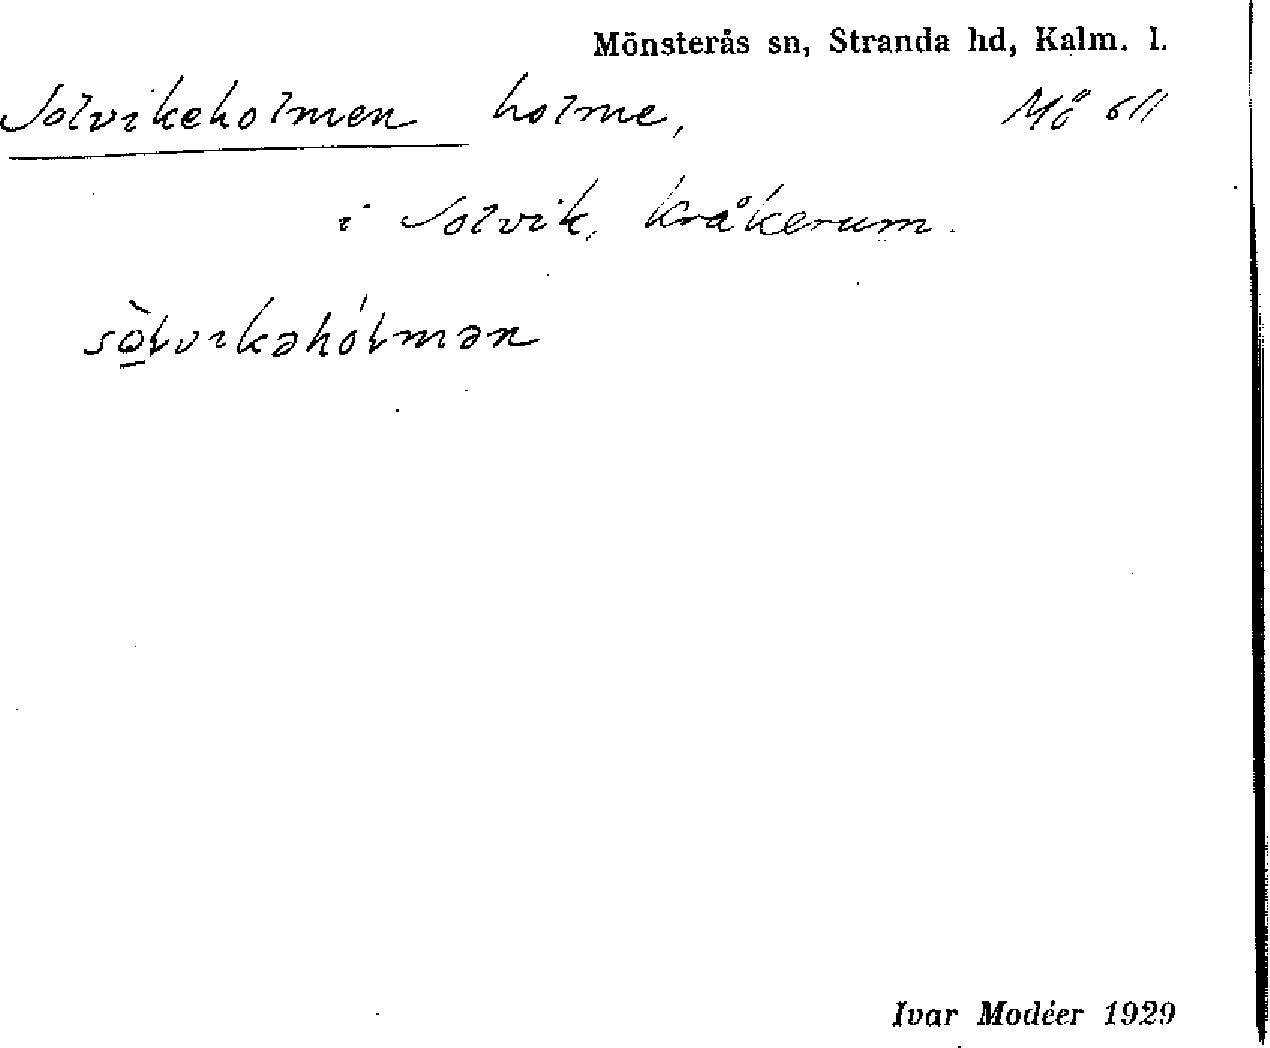 Mönsterås sn, Stranda hd, Kalm. l.
Solvikeholmen holme, Mö 611
i Solvik, Kråkerum.
sò̠lvikəhólmən
Ivar Modéer 1929